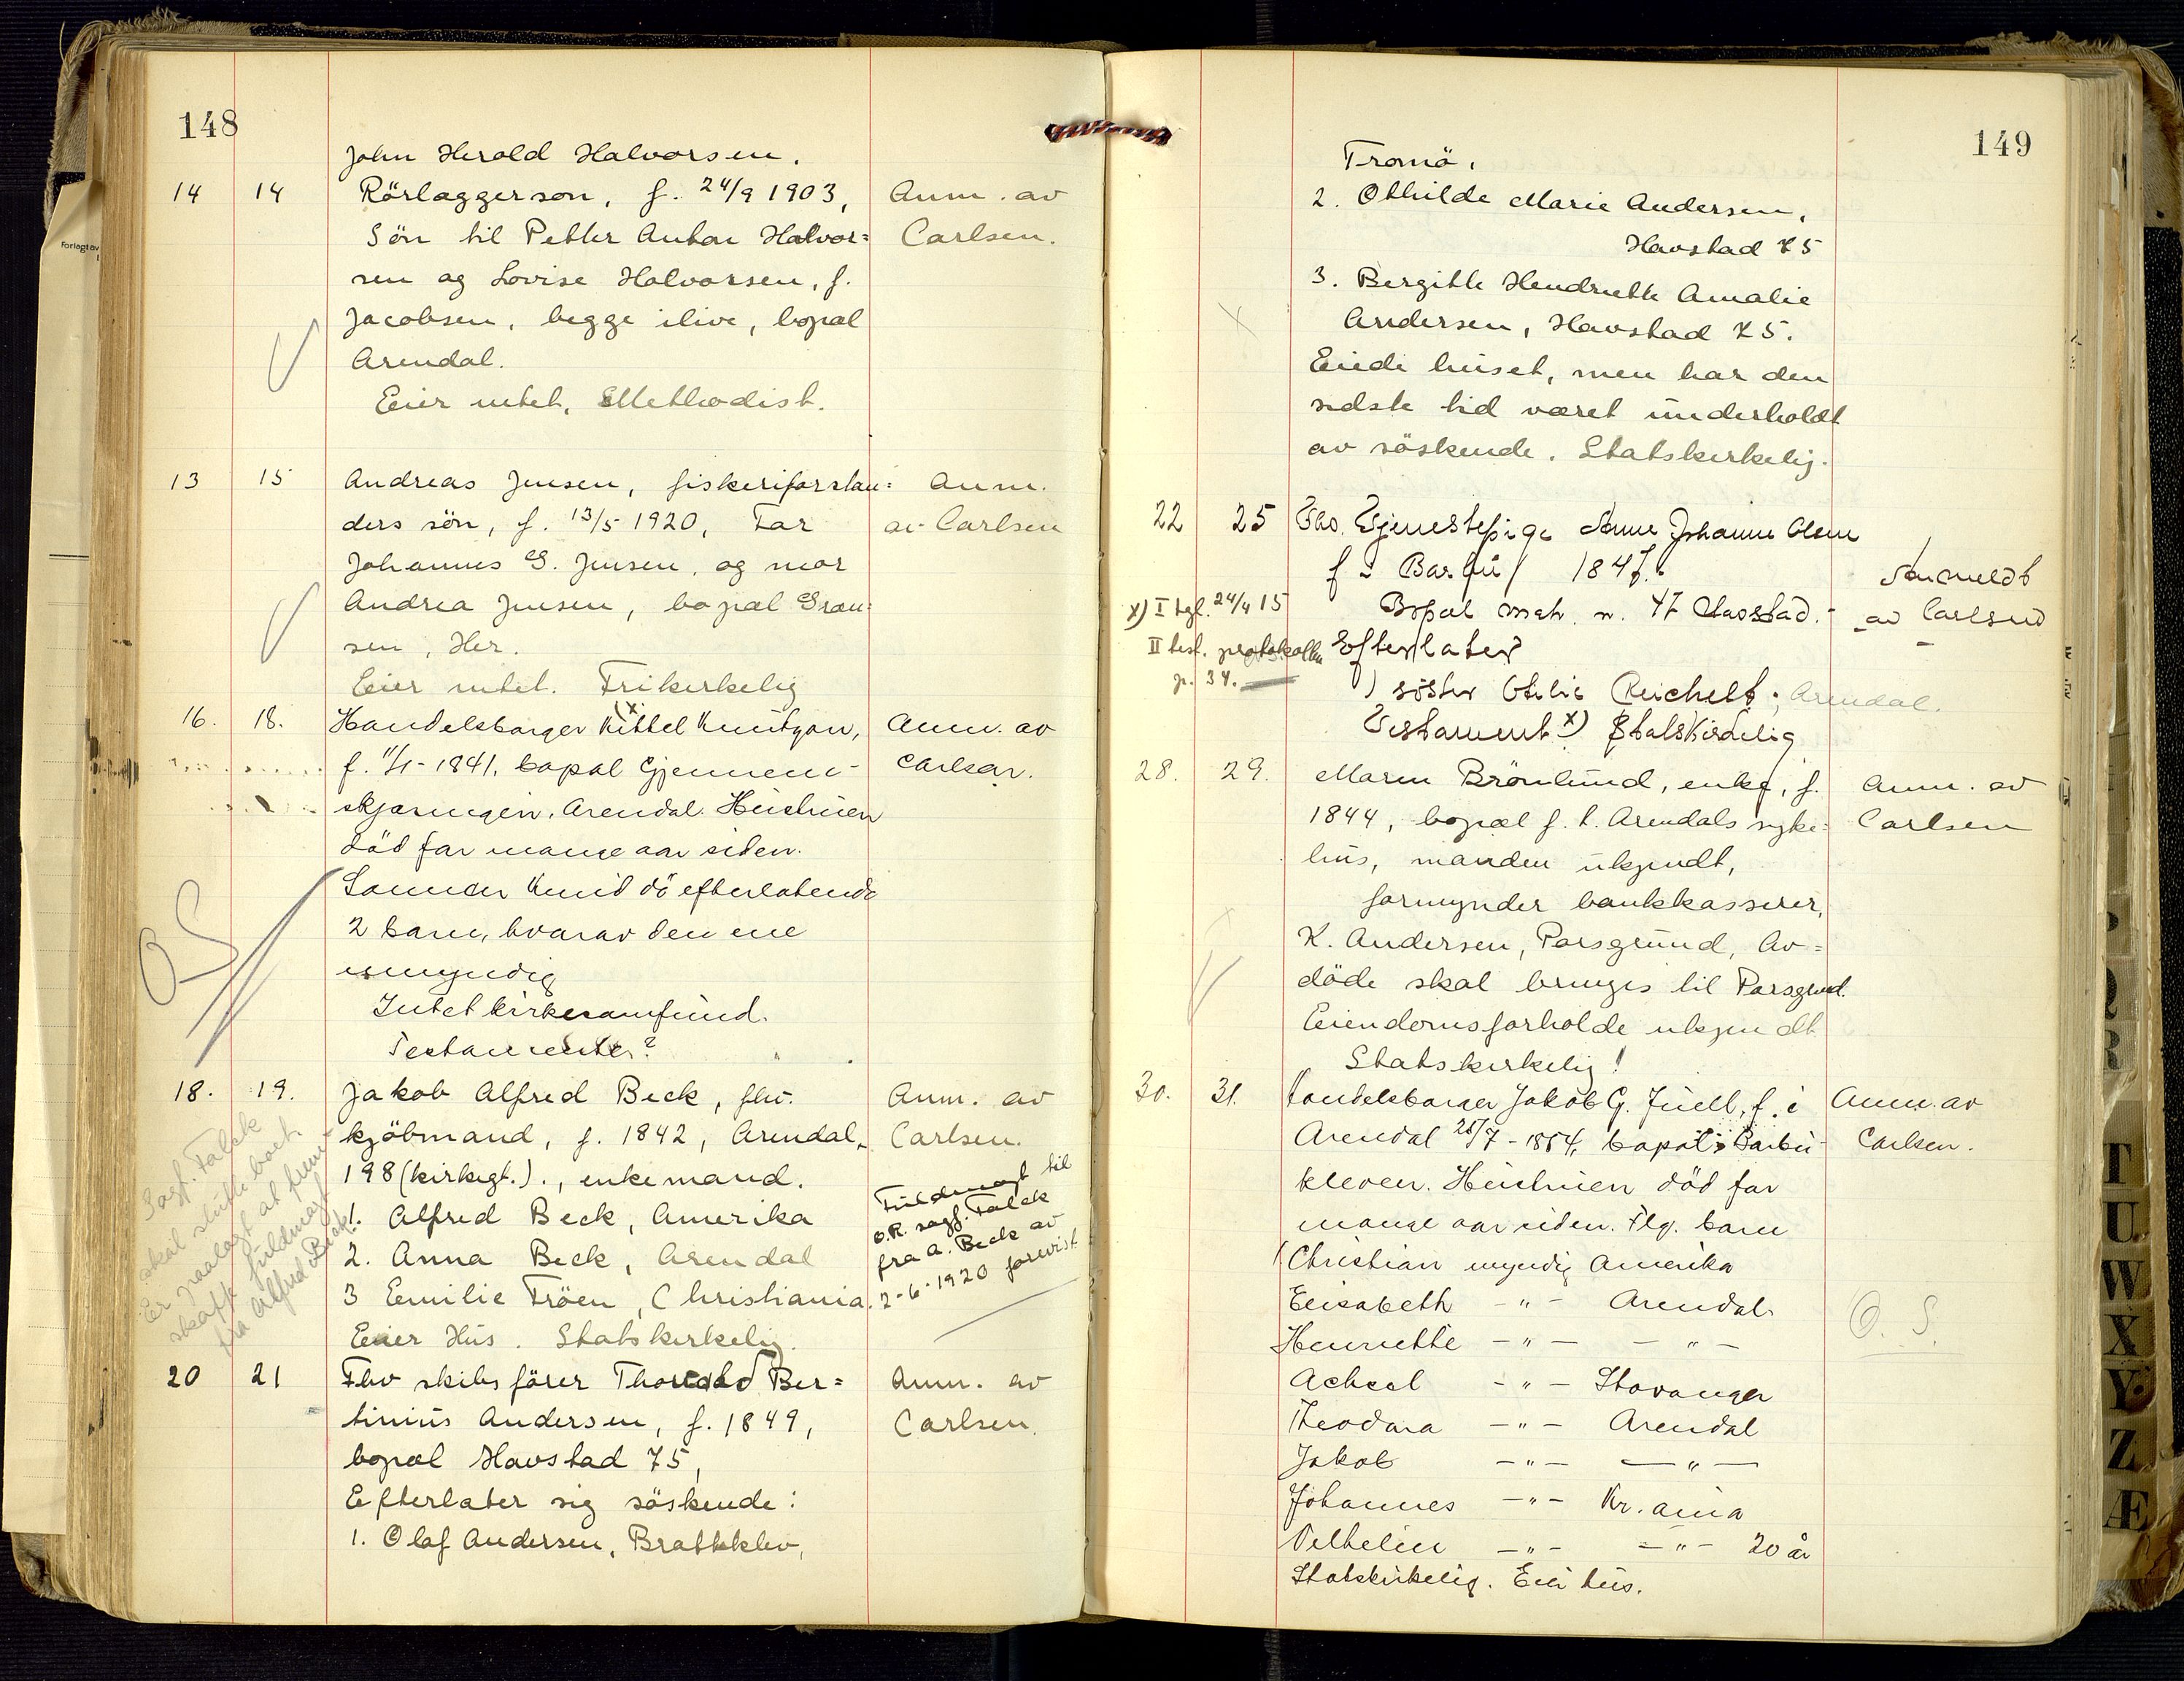 148
John Herold Halvorsen.
14 14 Rörlæggersøn, f. 24/9 1903, Anm. av
Sön til Petter Anton Halvor= Carlsen.
sen og Lovise Halvorsen, f.
Jacobsen, begge ilive, bopæl
Arendal.
Eier intet. Methodist.
13 15 Andreas Jensen, fiskeriforstan= Anm.
ders sön, f. 13/5 1920, Far av Carlsen
Johannes G. Jensen, og mor
Andrea Jensen, bopæl
sen, Her.
Eier intet. Frikirkelig
16. 18. Handelsborger Kittel Knutzon, Anm. av
f. 11/1-1841, bopæl Gjennem- Carlsen.
skjæringen, Arendal. Hustruen
död for mange aar siden.
Sønnen Knud dö efterlatende
2 barn, hvorav den ene
umyndig
Intet kirkesamfund.
Testamente?
OS
18. 19. Jakob Alfred Beck, fhv. Anm. av
kjöbmand, f. 1842, Arendal, Carlsen.
198 (kirkegt.)., enkemand.
1. Alfred Beck, Amerika
2. Anna Beck, Arendal
3 Emilie Tröen, Christiania.
Eier Hus. Statskirkelig.
Fuldmagt til
O.R. sagf. Falck
fra A. Beck av
2-6-1920 forevist
Sagf. Falck
skal slutte boet.
Er paalagt at frem-
skaffe fuldmagt
fra Alfred Beck.
20 21 Fhv skibsförer Thorvald Ber= Anm. av
tinius Andersen, f. 1849, Carlsen.
bopæl Havstad 75,
Efterlater sig söskende:
1. Olaf Andersen, Bratteklev,
149
Tromö.
2. Othilde Marie Andersen,
Havstad 75
3. Bergitte Hendriette Amalie
Andersen, Havstad 75.
Eiede huset, men har den
sidste tid været underholdt
av söskende. Statskirkelig.
22 25 Fhv. Tjenestepige Anne Johanne Olsen
f i Barbu 1847. Anmeldt
Bopæl matr. n. 47 Havstad. av Carlsen
x) I tgl. 24/4 15
II test. protokollen
p. 34.
Efterlater
1) söster Otilie Reichelt, Arendal.
Testament x) Statskirkelig
28. 29. Maren Brönlund, enke, f. Anm. av
1844, bopæl f. t. Arendals syke= Carlsen
hus, manden ukjendt,
formynder bankkasserer,
K. Andersen, Porsgrund, Av=
döde skal bringes til Porsgrund.
Eiendomsforholde ukjendt
Statskirkelig!
30. 31. Handelsborger Jakob G. Juell, f. i Anm. av
Arendal 25/7-1854, bopæl: Barbu- Carlsen.
kleven. Hustruen död for
mange aar siden. Flg. barn
Christian myndig Amerika
Elisabeth -"- Arendal
Henriette -"- -"-
Achsel -"- Stavanger
Theodora -"- Arendal
Jakob -"- -"-
Johannes -"- Kr.ania
Vilhelm -"- -"- 20 år
Statskirkelig. Eier hus.
O. S.
T
U
W
X
Y
Z
Æ